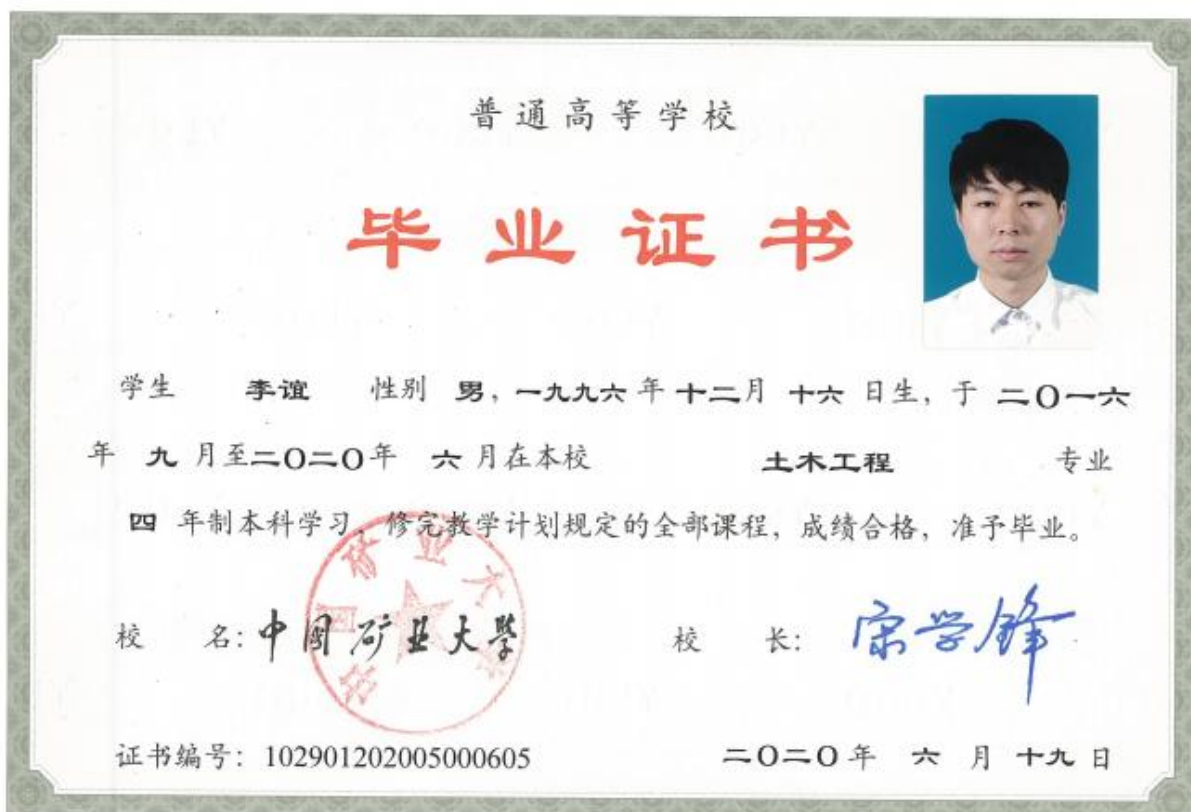 普通高等学校
毕业证书
学生 李谊 性别 男，一九九六年十二月十六日生，于二〇一六
年九月至二〇二〇年六月在本校 土木工程 专业
四年制本科学习，修完教学计划规定的全部课程，成绩合格，准予毕业。
中国矿业大学
校 名：中国矿业大學
校 长：宋学锋
证书编号：102901202005000605
二〇二〇年六月十九日